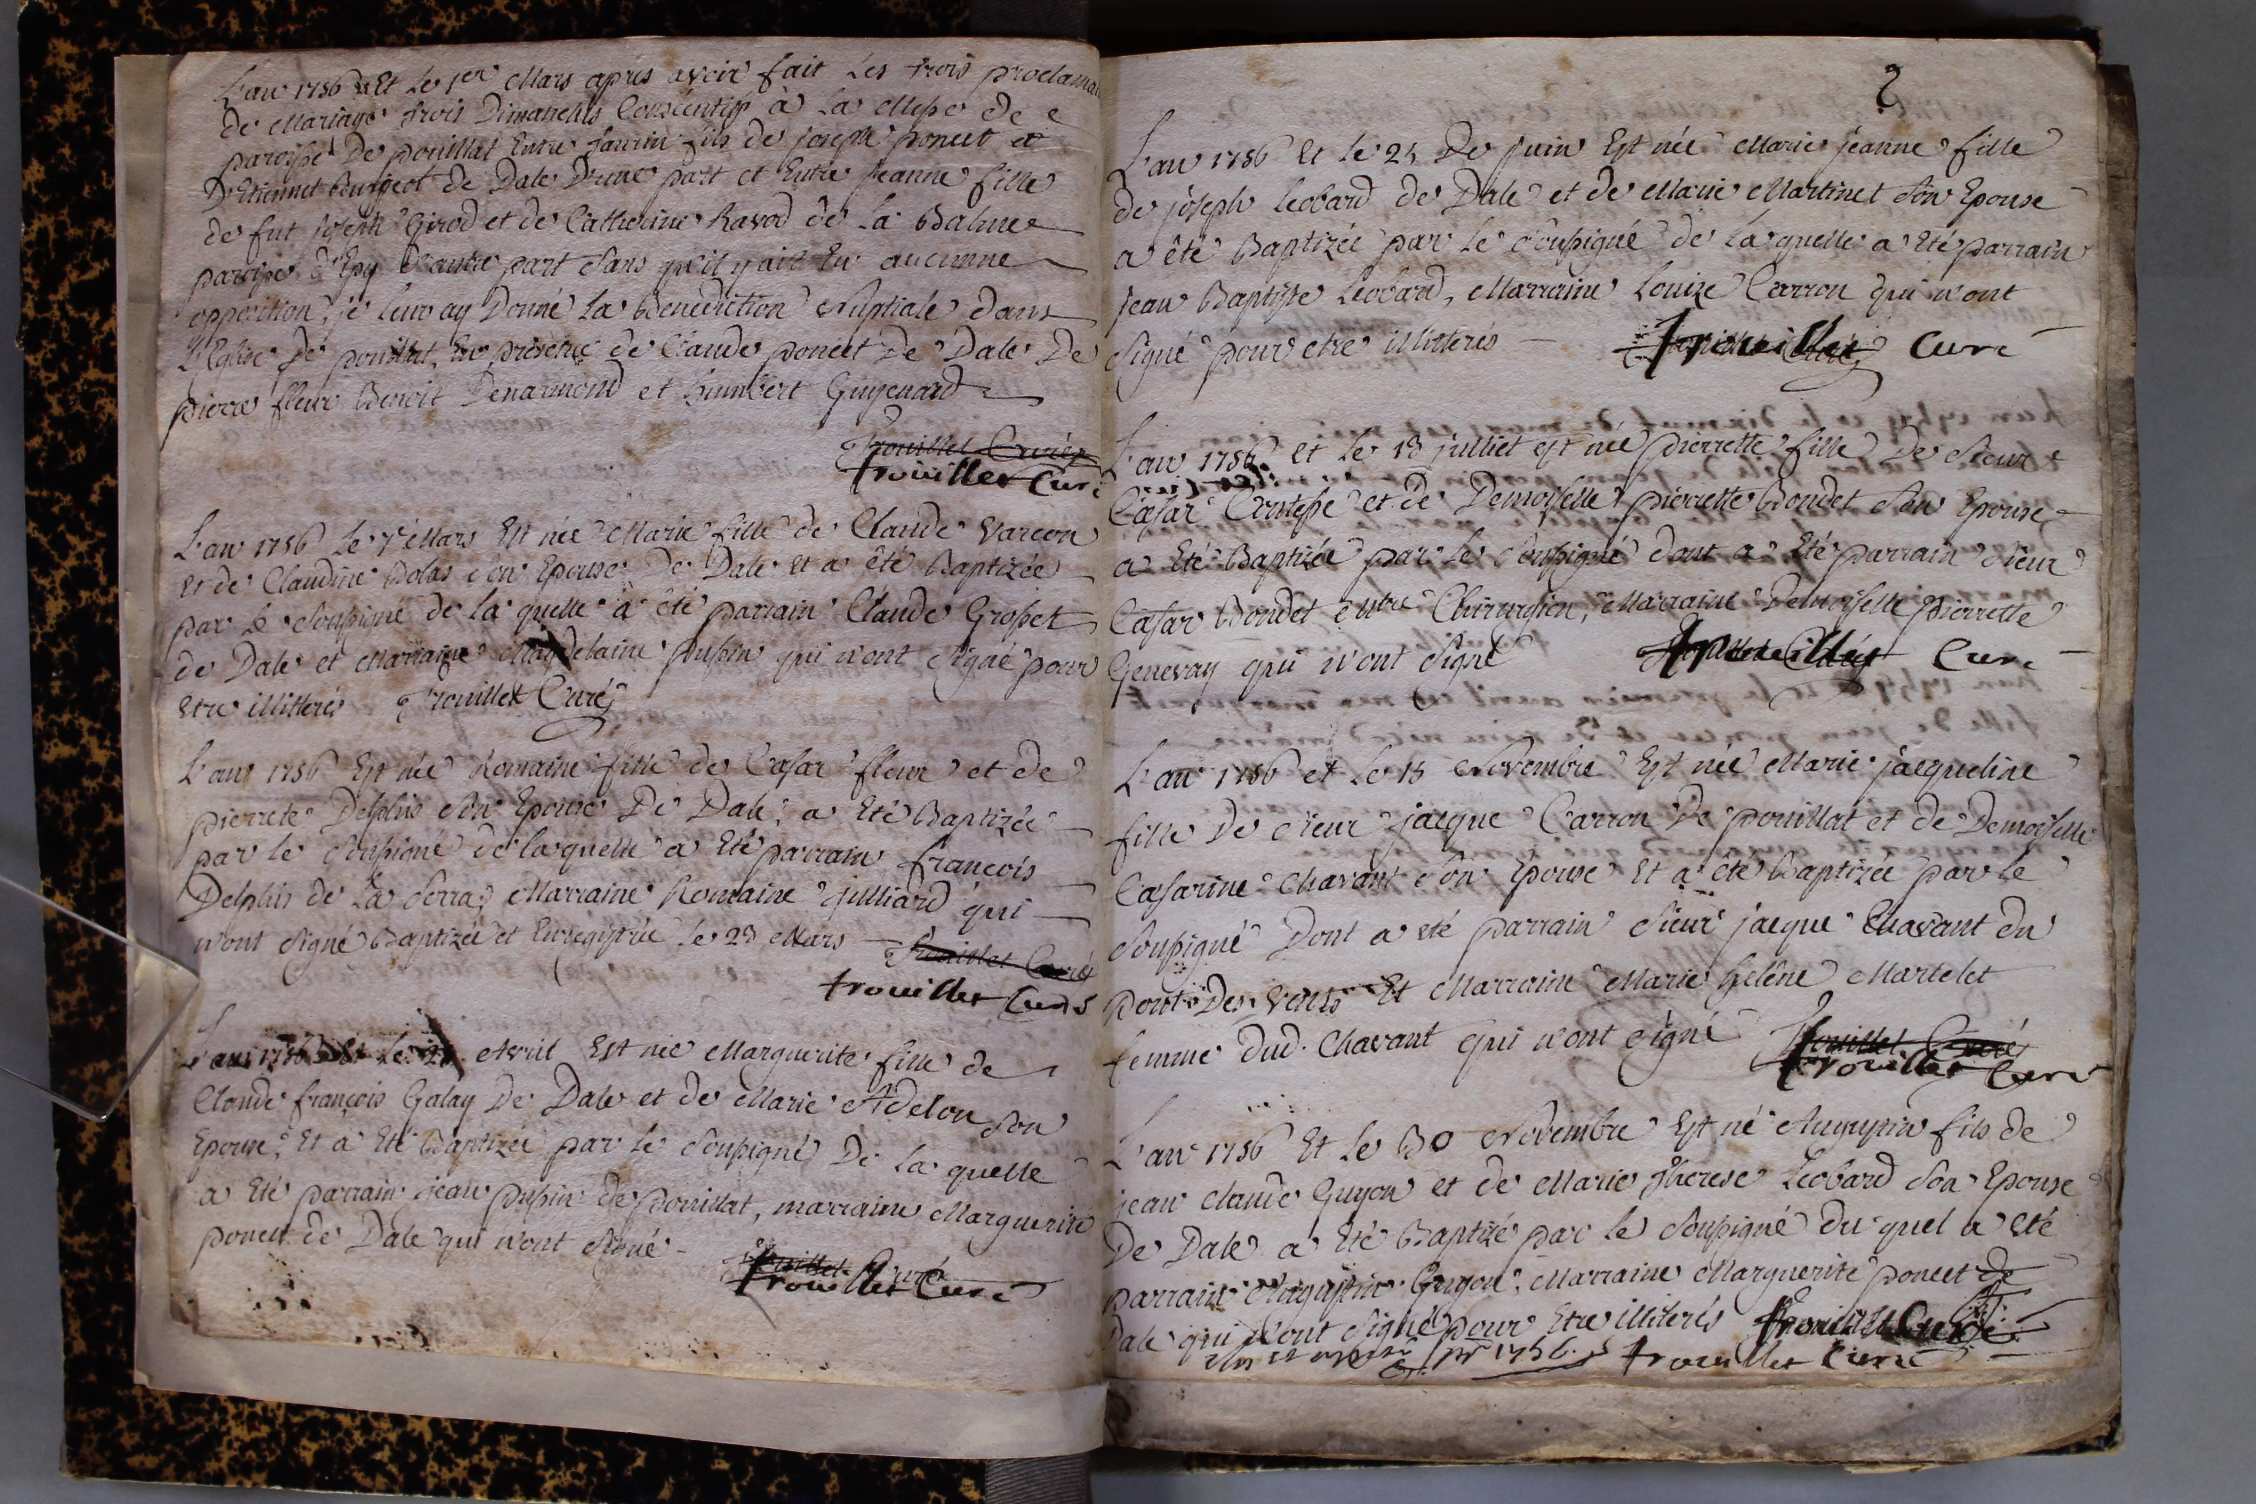 L'an 1756 Et Le 1er Mars apres avoir fait Les trois proclama
de Mariage trois Dimanches Consecutifs à La Messe de
paroisse De pouillat Entre fils de joseph poncet et
D'Etiennet Burgeot de Dale D'une part et Entre jeanne fille
de fut joseph Girod et de Catherine Ravod de La Balme
paroisse d'Epy D'autre part Sans qu'il y ait Eu aucunne
opposition, je leur ay Donné La Benediction Nuptiale dans
L'Eglise De pouillat, En presence de Claude poncet De Dale De
pierre fleur Benoit Denarmond et humbert Guyenard
Trouillet Curé
trouillet Curé
L'an 1756 Le 7e Mars Est née Marie fille de Claude Varcon
Et de Claudine Bolas son Epouse De Dale Et a été Baptizée
par Le Soussigné de la quelle a été parrain Claude Grosset
de Dale et Marraine Magdelaine pupin qui n'ont signé pour
Etre illitterés Trouillet Curé
L'an 1756 Est née Romaine fille de Cæsar fleur et de
pierrete Delphis son Epouse De Dale, a Eté Baptizée
par le Soussigné de la quelle a Eté parrain françois
Delphis de La Serra, Marraine Romaine julliard qui
n'ont Signé Baptizée et Enregistrée le 23 Mars Trouillet Curé
trouillet Curé
L'an 1756 Et Le avril Est née Marguerite fille de
Claude françois Galay De Dale et de Marie Adelon son
Epouse, Et a Eté Baptizée par le Soussigné De la quelle
a Eté parrain jean pupin de pouillat, marraine Marguerite
poncet de Dale qui n'ont Signé Trouillet Curé
trouillet Curé
2
L'an 1756 Et Le 25 De juin Est née Marie jeanne fille
de joseph Leobard de Dale et de Marie Martinet son Epouse
a été Baptizée par le soussigné de la quelle a Eté parrain
jean Baptiste Leobard, Marraine Louize Carron qui n'ont
signé pour etre illitterés trouillet Curé
L'an 1756 et le 13 julliet est née pierrette fille De Sieur
Cæsar Contesse et de Demoiselle pierrette Bondet son Epouse
a Eté Baptizée par le Soussigné dont a Eté parrain Sieur
Cæsar Bondet Mtre Chirurgien, Marraine Demoiselle pierrette
Genevay qui n'ont Signé trouillet Curé
L'an 1756 et Le 15 Novembre Est née Marie jacqueline
fille De Sieur jacque Carron De pouillat et de Demoiselle
Cæsarine Chavant son Epouse Et a été Baptizée par le
soussigné Dont a eté parrain Sieur jacque Chavant du
pont Des Vents Et Marraine Marie helêne Martelet
femme dud. Chavant qui n'ont signé Trouillet Curé
trouillet Curé
L'an 1756 Et le 30 Novembre Est né Augustin fils de
jean Claude Guyon et de Marie Therese Leobard Son Epouse
De Dale a Eté Baptizé par le soussigné du quel a Eté
parrain Augustin Guyon, Marraine Marguerite poncet de
Dale qui n'ont signé pour Etre illiterés trouillet Curé
1756. trouillet Curé